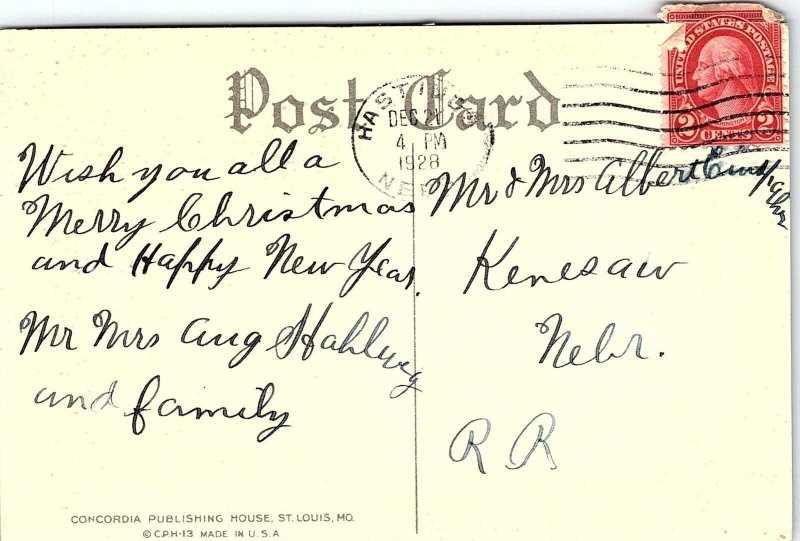 Post Card
UNITED STATES POSTAGE
WASHINGTON
2 CENTS 2
HASTINGS
DEC 21
4 PM
1928
NEBR
Wish you all a
Merry Christmas
and Happy New Year.
Mr Mrs Aug
and family
Mr & Mrs Albert
Kenesaw
Nebr.
R R
CONCORDIA PUBLISHING HOUSE, ST. LOUIS, MO.
© C.P.H-13 MADE IN U.S.A.